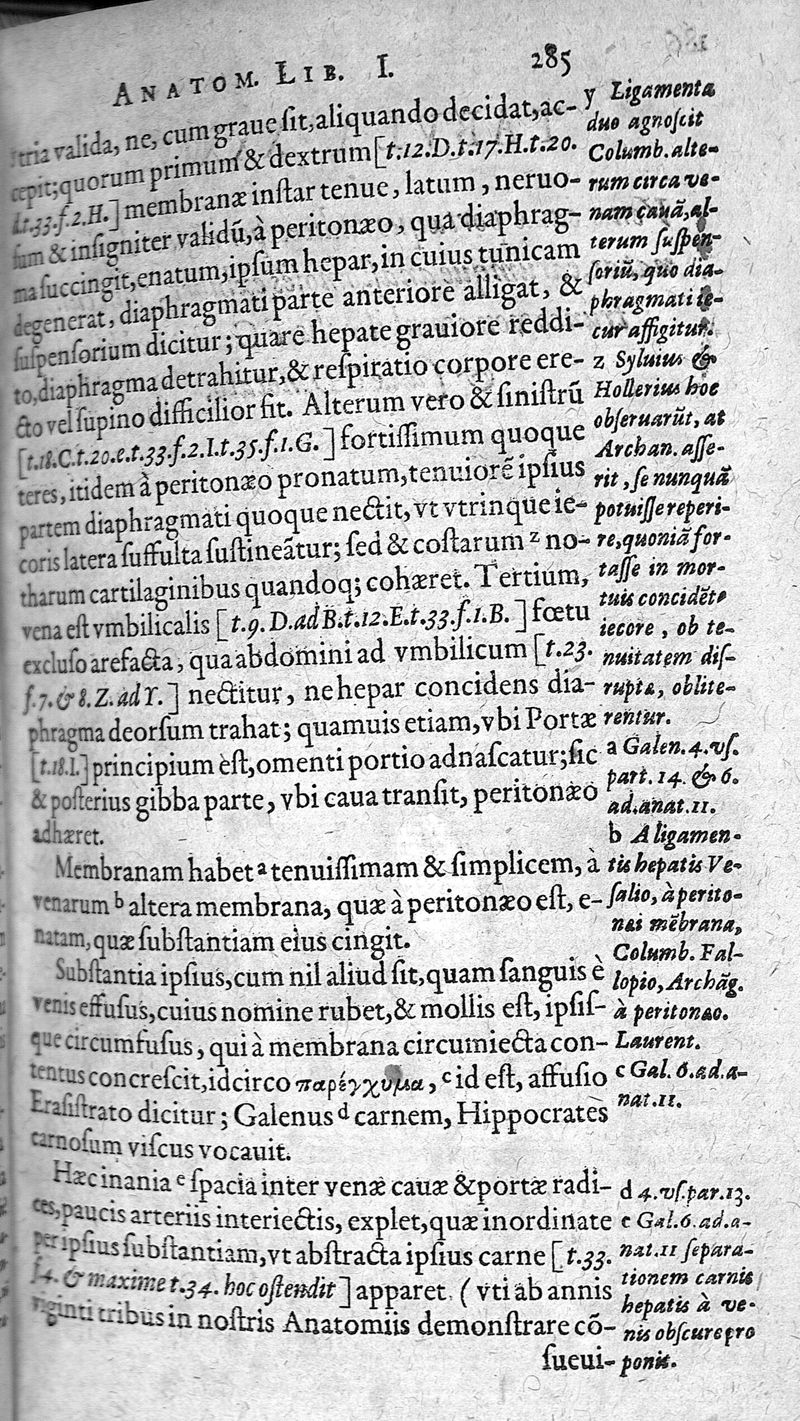 ANATOM. LIB. I. 285
tria valida, ne, cum graue ſit, aliquando decidat, ac-
cepit; quorum primum & dextrum [t.12.D.t.17.H.t.20.
d.t.33.f.2.H.] membranæ inſtar tenue, latum, neruo-
ſum & inſigniter validũ, à peritonæo, qua diaphrag-
ma ſuccingit, enatum, ipſum hepar, in cuius tunicam
degenerat, diaphragmati parte anteriore alligat, &
ſuſpenſorium dicitur; quare hepate grauiore reddi-
to, diaphragma detrahitur, & reſpiratio corpore ere-
cto vel ſupino difficilior fit. Alterum vero & ſiniſtrũ
[t.18.C.t.20.e.t.33.f.2.I.t.35.f.1.G.] fortiſſimum quoque
teres, itidem à peritonæo pronatum, tenuiorẽ ipſius
partem diaphragmati quoque nectit, vt vtrinque ie-
coris latera ſuffulta ſuſtineãtur; ſed & coſtarum z no-
tharum cartilaginibus quandoq; cohæret. Tertium,
vena eſt vmbilicalis [t.9.D.ad B.t.12.E.t.33.f.1.B.] fœtu
excluſo arefacta, qua abdomini ad vmbilicum [t.23.
f.7.& 8.Z.ad Y.] nectitur, ne hepar concidens dia-
phragma deorſum trahat; quamuis etiam, vbi Portæ
[t.18.I.] principium eſt, omenti portio adnaſcatur; ſic
& poſterius gibba parte, vbi caua tranſit, peritonæo
adhæret.
Membranam habet a tenuiſſimam & ſimplicem, à
venarum b altera membrana, quæ à peritonæo eſt, e-
natam, quæ ſubſtantiam eius cingit.
Subſtantia ipſius, cum nil aliud ſit, quam ſanguis è
venis effuſus, cuius nomine rubet, & mollis eſt, ipſiſ-
que circumfuſus, qui à membrana circumiecta con-
tentus concreſcit, idcirco παρέγχυμα, c id eſt, affuſio
Eraſiſtrato dicitur; Galenus d carnem, Hippocrates
carnoſum viſcus vocauit.
Hæc inania e ſpacia inter venæ cauæ & portæ radi-
ces, paucis arteriis interiectis, explet, quæ inordinate
per ipſius ſubſtantiam, vt abſtracta ipſius carne [t.33.
f.4. & maxime t.34. hoc oſtendit] apparet. (vti ab annis
viginti tribus in noſtris Anatomiis demonſtrare cõ-
ſueui-
y Ligamenta
duo agnoſcit
Columb. alte-
rum circa ve-
nam cauã, al-
terum ſuſpen-
ſoriũ, quo dia-
phragmati ie-
cur affigitur.
z Syluius &
Hollerius hoc
obſeruarũt, at
Archan. aſſe-
rit, ſe nunquã
potuiſſe reperi-
re, quoniã for-
taſſe in mor-
tuis concidẽte
iecore, ob te-
nuitatem diſ-
rupta, oblite-
rentur.
a Galen. 4. vſ.
part. 14. & 6.
ad. anat. 11.
b A ligamen-
tis hepatis Ve-
ſalio, à perito-
nei mẽbrana,
Columb. Fal-
lopio, Archãg.
à peritonæo.
Laurent.
c Gal. 6. ad. a-
nat. 11.
d 4. vſ. par. 13.
e Gal. 6. ad. a-
nat. 11 ſepara-
tionem carnis
hepatis à ve-
nis obſcure pro
ponit.